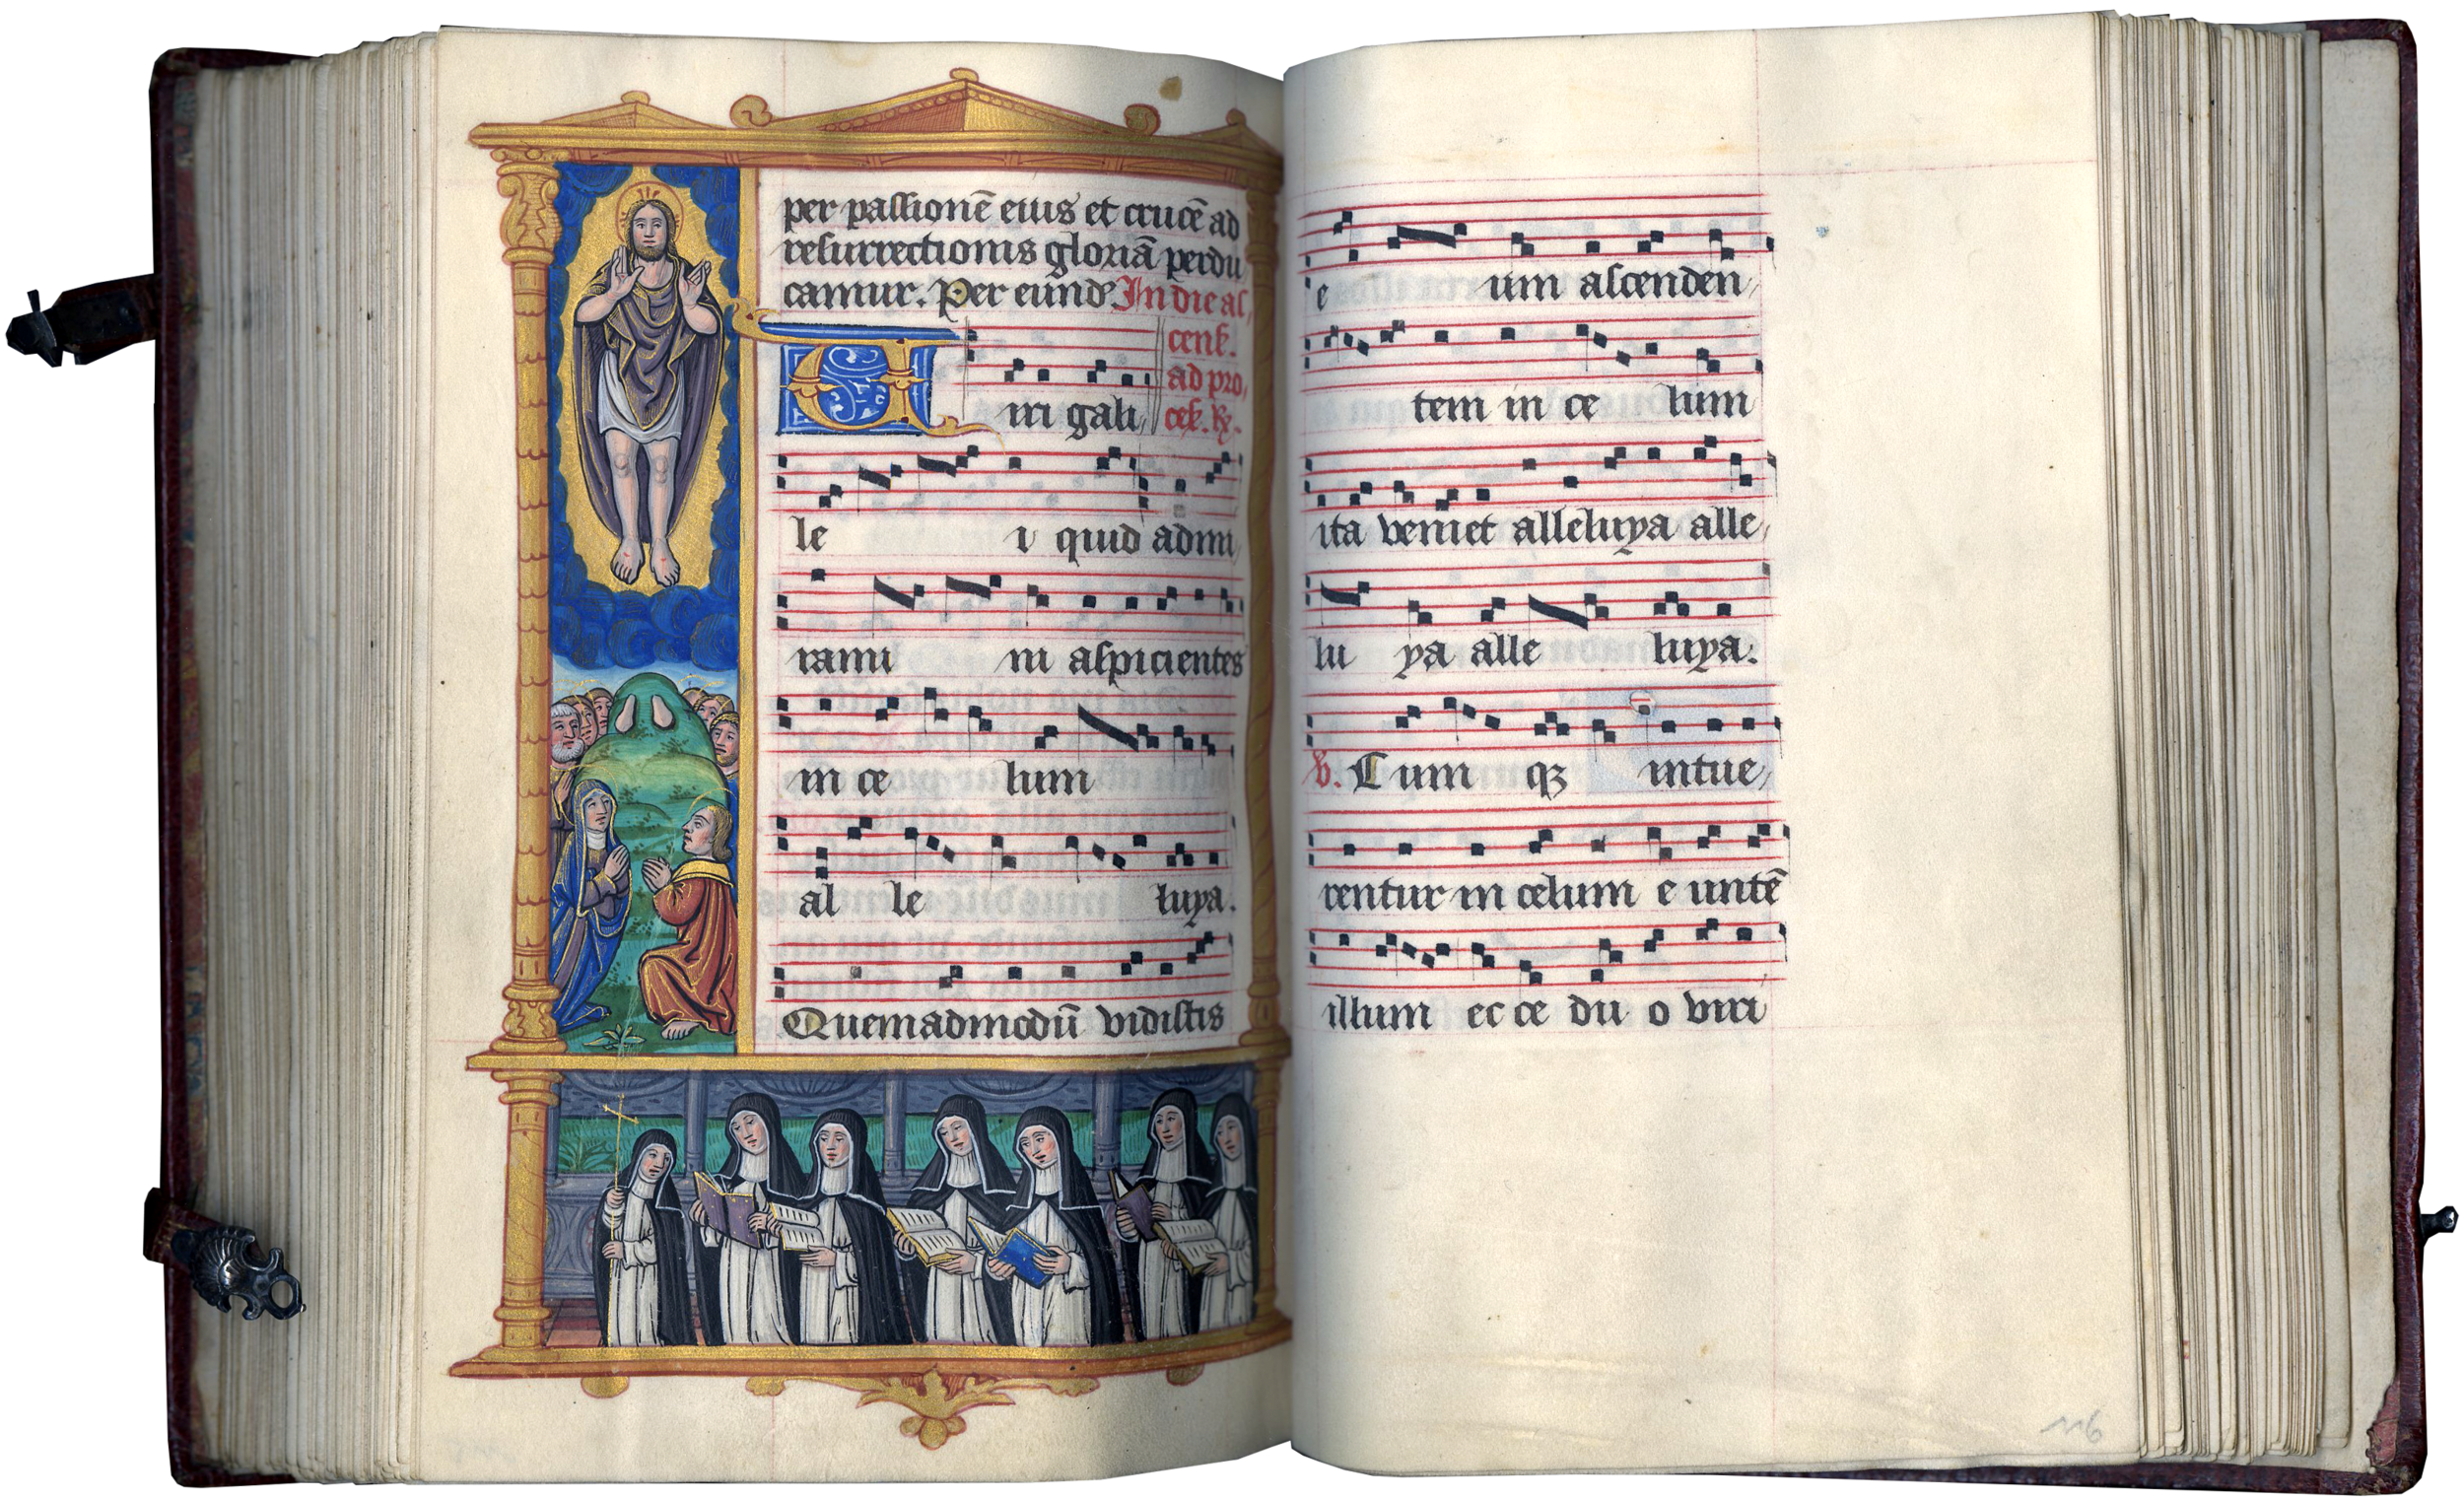 per passionē eius et crucē ad
resurrectionis gloriā perdu
camur. Per eund̄ In die as,
cens̄.
ad pro,
ces̄. ℟.
Uiri gali,
le i quid admi,
rami ni aspicientes
in ce lum
al le luya.
Quemadmodū vidistis
e um ascenden,
tem in ce lum
ita veniet alleluya alle,
lu ya alle luya.
℣. Cum qꝫ intue,
rentur in celum e untē
illum ec ce du o viri
116